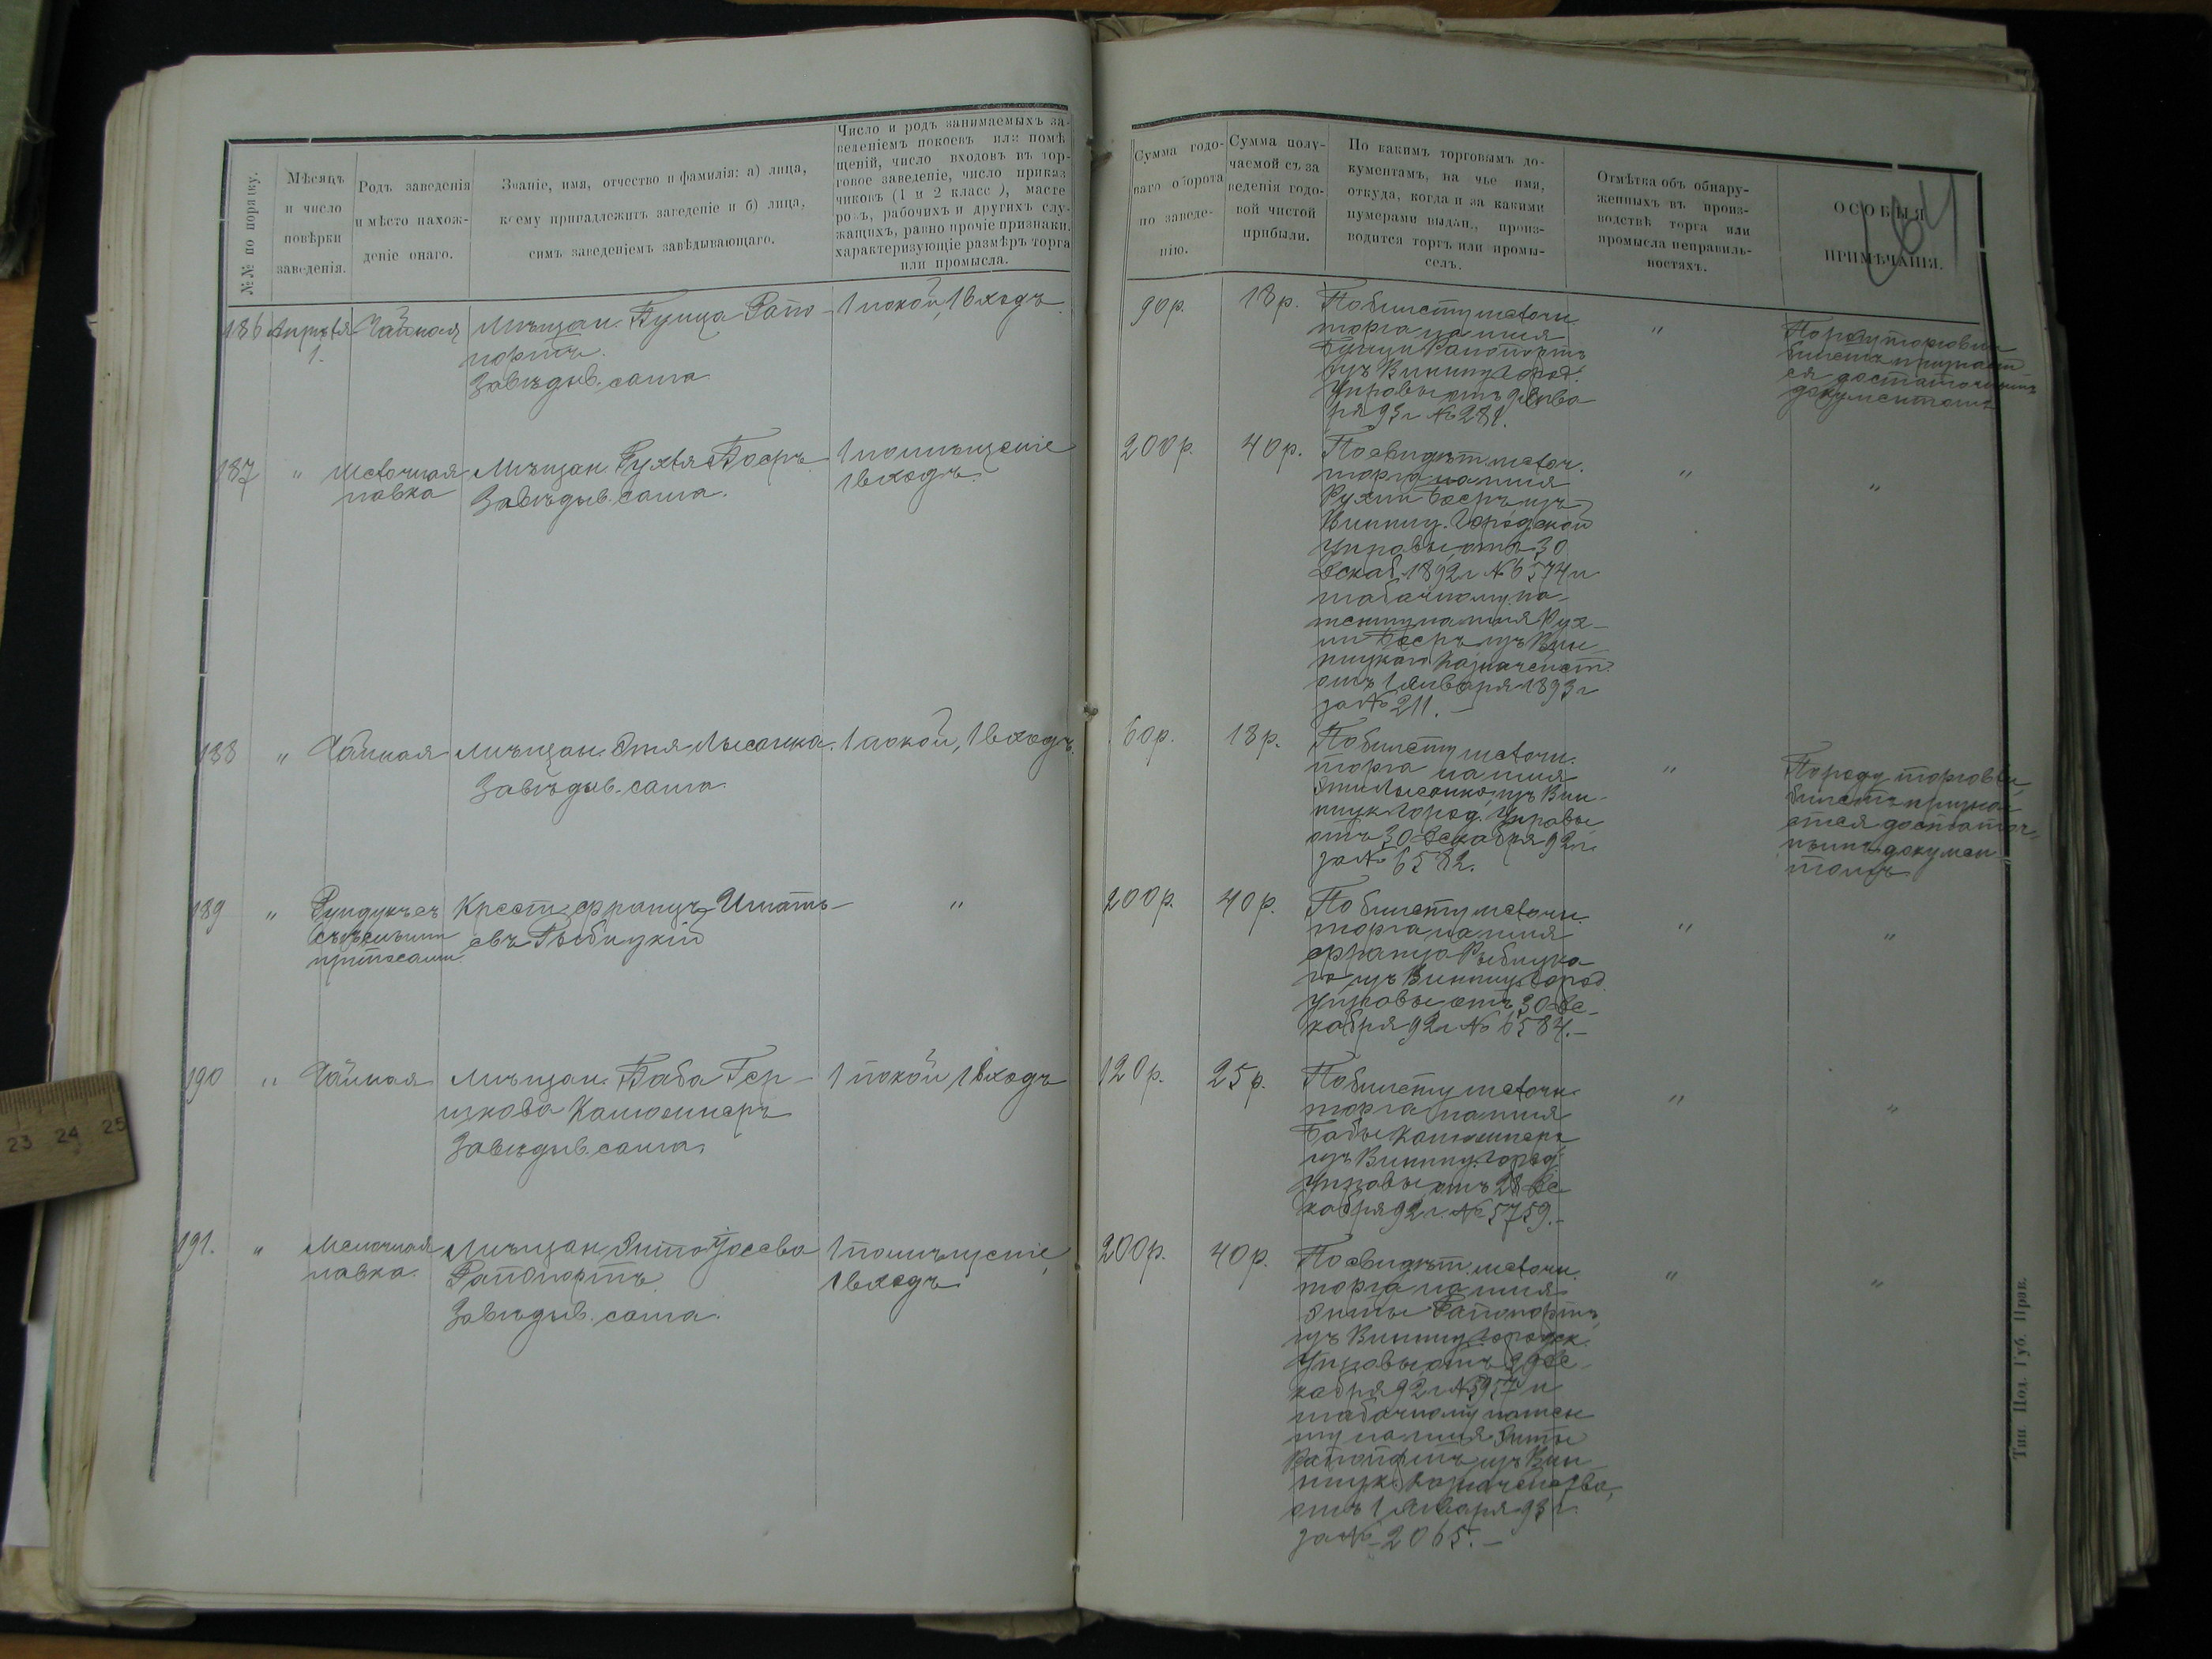 №№ по порядку.
Мѣсяцъ
и число
повѣрки
заведенія.
Родъ заведенія
и мѣсто нахож-
деніе онаго.
Званіе, имя, отчество и фамилія: а) лица,
коему принадлежитъ заведеніе и б) лица,
симъ заведеніемъ завѣдывающаго.
Число и родъ занимаемыхъ за-
веденіемъ покоевъ или помѣ
щеній, число входовъ въ тор-
говое заведеніе, число приказ
чиковъ (1 и 2 класс), масте
ровъ, рабочихъ и другихъ слу-
жащихъ, равно прочіе признаки,
характеризующіе размѣръ торга
или промысла.
Сумма годо-
ваго оборота
по заведе-
нію.
Сумма полу-
чаемой съ за
веденія годо-
вой чистой
прибыли.
По какимъ торговымъ до-
кументамъ, на чье имя,
откуда, когда и за какими
нумерами выдан., произ-
водится торгъ или промы-
селъ.
Отмѣтка объ обнару-
женныхъ въ произ-
водствѣ торга или
промысла неправиль-
ностяхъ.
ОСОБЫЯ
ПРИМѢЧАНІЯ.
186 Апрѣля
1.
Чайная
Мѣщан. Буница Рапо-
портъ.
Завѣдыв. сама
1 покой, 1 входъ.
90р.
18р.
По билету мелочн.
торга на имя
Рапопортъ
изъ Винниц. Город.
Управы отъ 9 Янва
ря 93 г №281.
"
По роду торговли
билетъ признает
ся достаточнымъ
документомъ
187
"
Мелочная
лавка
Мѣщан. Рухля Боеръ
Завѣдыв. сама.
1 помѣщеніе
1 входъ.
200р.
40р.
По свидѣт. мелоч.
торга на имя
Рухли Боеръ изъ
Винниц. Городской
Управы отъ 30
Декаб. 1892 г №6574 и
табачному па-
тенту на имя Рух-
ли Боеръ изъ Вин-
ницкаго Казначейст.
отъ 1 Января 1893 г
за № 211.
"
"
188
"
Чайная
Мѣщан. Этя Лысонка.
Завѣдыв. сама.
1 покой, 1 входъ.
60р.
18р.
По билету мелочн.
торга на имя
Эти Лысонко, изъ Вин-
ницк. Город. Управы
отъ 30 Декабря 92 г.
за № 6582.
"
По роду торговли,
билетъ призна-
ется достаточ-
нымъ докумен-
томъ
189
"
Рундукъ съ
съѣстными
припасами.
Крест. Францъ Игнатъ-
евъ Рыбицкій
"
200р.
40р.
По билету мелочн.
торга на имя
Франца Рыбицка
го изъ Винниц. Город.
Управы отъ 30 Де-
кабря 92 г № 6584.-
"
"
190
"
Чайная
Мѣщан. Баба Гер-
шкова
Завѣдыв. сама.
1 покой 1 входъ
120р.
25р.
По билету мелочн.
торга на имя
Бабы
изъ Винниц. Город.
Управы отъ 28 Де
кабря 92 г. № 5759.-
"
"
191.
"
Мелочная
лавка.
Мѣщан. Рапопортъ
Завѣдыв. сама.
1 помѣщеніе,
1 входъ.
200р.
40р.
По свидѣт. мелочн.
торга на имя
Рапопортъ,
изъ Винниц. Городск.
Управы отъ Де-
кабря 92 г №5957 и
табачному патен
ту на имя
Рапопортъ изъ Вин
ницк. Казначейства,
отъ 1 Января 93 г.
за № 2065.-
"
"
Тип Под. Губ. Прав.